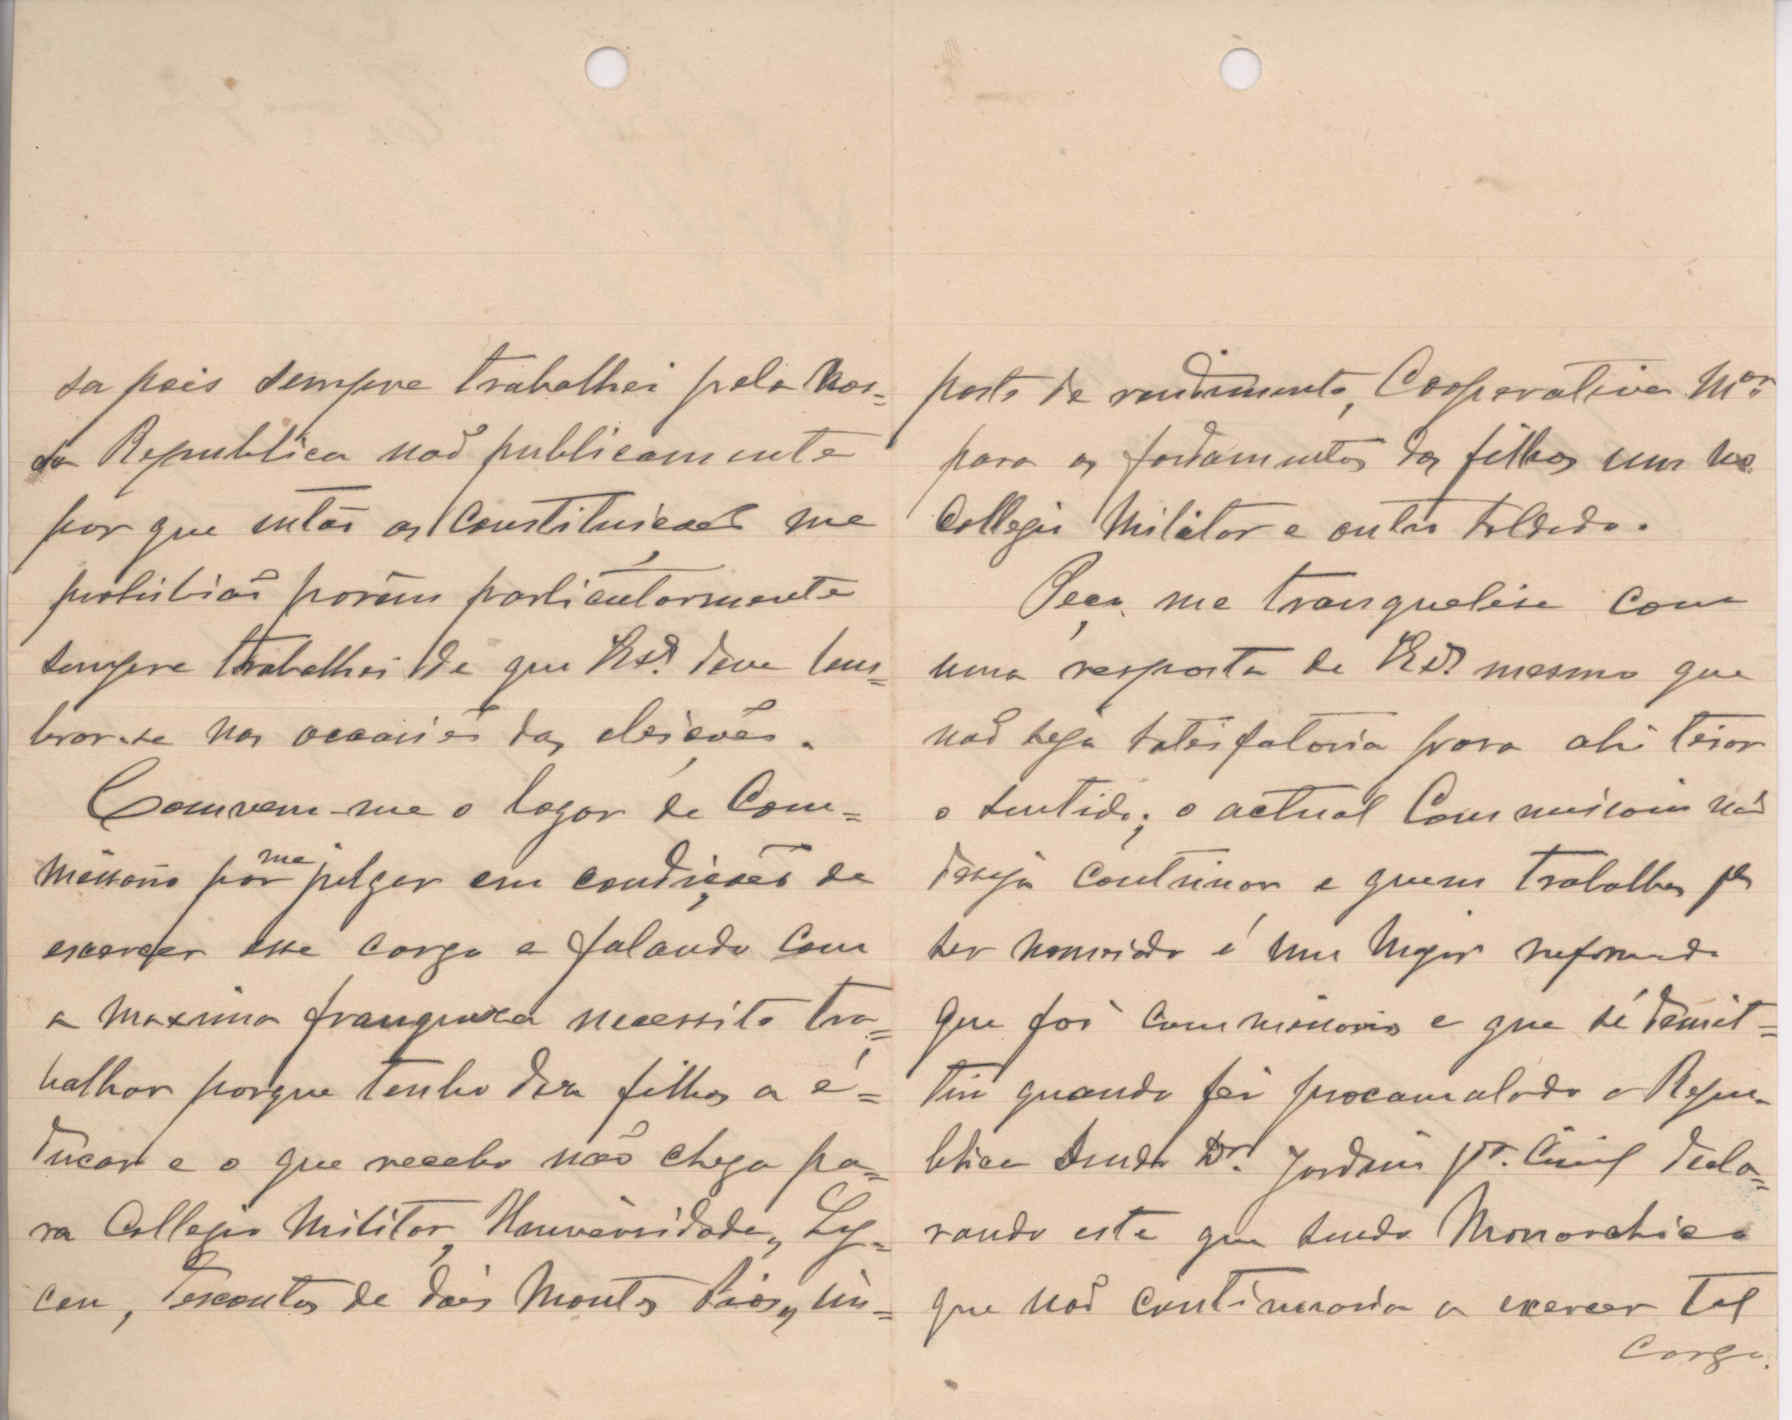 sa pois sempre trabalhei pela Nos=
sa Republica não publicamente
por que então as Constituições me
prohibião porém particularmente
sempre trabalhei de que V. Exª. deve lem=
brar-se nas occasiões das eleições.
Comvem-me o logar de Com=
missario por me julgar em condições de
escercer esse cargo e falando com
a maxima franqueza necessito tra=
balhar porque tenho dez filhos a e=
ducar e o que recebo não chega pa=
ra Collegio Militar, Universidade, Ly=
ceu, descontos de dois Montes Pios, im=
posto de rendimento, Cooperativa Mar
para os fardamentos dos filhos um no
Collegio Militar e outro Soldado.
Peço me tranquelise com
uma resposta de V. Exª. mesmo que
não seja satesfatoria para ahi tirar
o sentido; o actual Commissario não
deseja continuar e quem trabalha pª
ser nomeado é um Major reformado
que foi Commissario e que se demit=
tiu quando foi procamalada a Repu=
blica sendo Dr. Jordão Gr. Civil decla=
rando este que sendo Monarchico
que não continuaria a exercer tal
cargo.